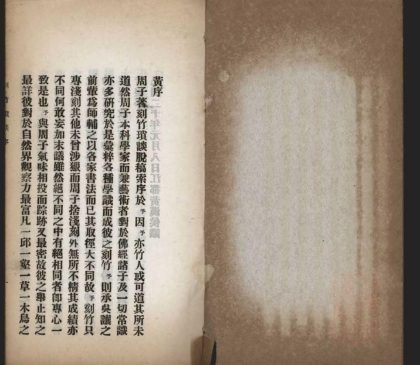 黃序
周子著刻竹瑣談脫稿索序於予因予亦竹人或可道其所未
道然周子本科學家而兼藝術者對於佛經諸子及一切常識
亦多研究於是彙粹各種學識而成彼之刻竹予則承吳讓之
前輩爲師輔之以各家書法而已其取徑大不同故予刻竹只
專淺刻其他未曾涉緞而周子捨淺刻外無所不精其成績亦
不同何敢妄加末議雖然絕不同之中有絕相同者卽專心一
致是也予與周子氣味相投而踪跡又最密故彼之舉止知之
最詳彼對於自然界觀察力最富凡一邱一壑一草一木鳥之